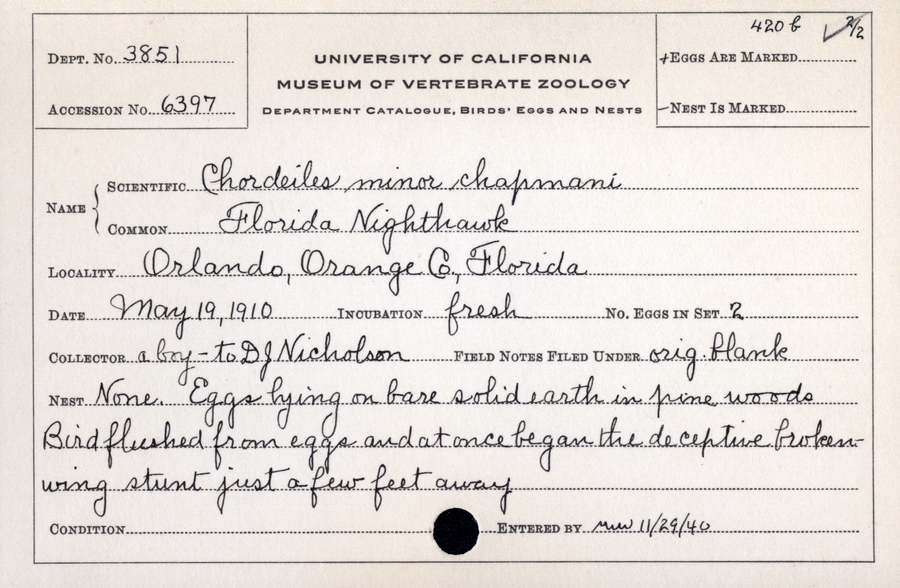 420 b ✓ 2/2
DEPT. No. 3851
UNIVERSITY OF CALIFORNIA
+EGGS ARE MARKED
MUSEUM OF VERTEBRATE ZOOLOGY
ACCESSION No. 6397
DEPARTMENT CATALOGUE, BIRDS' EGGS AND NESTS
–NEST IS MARKED
NAME { SCIENTIFIC Chordeiles minor chapmani
COMMON Florida Nighthawk
LOCALITY Orlando, Orange Co., Florida
DATE May 19, 1910 INCUBATION fresh No. EGGS IN SET 2
COLLECTOR a boy - to DJ Nicholson FIELD NOTES FILED UNDER orig. blank
NEST None. Eggs lying on bare solid earth in pine woods
Bird flushed from eggs and at once began the deceptive broken-
wing stunt just a few feet away
CONDITION ENTERED BY 11/29/40